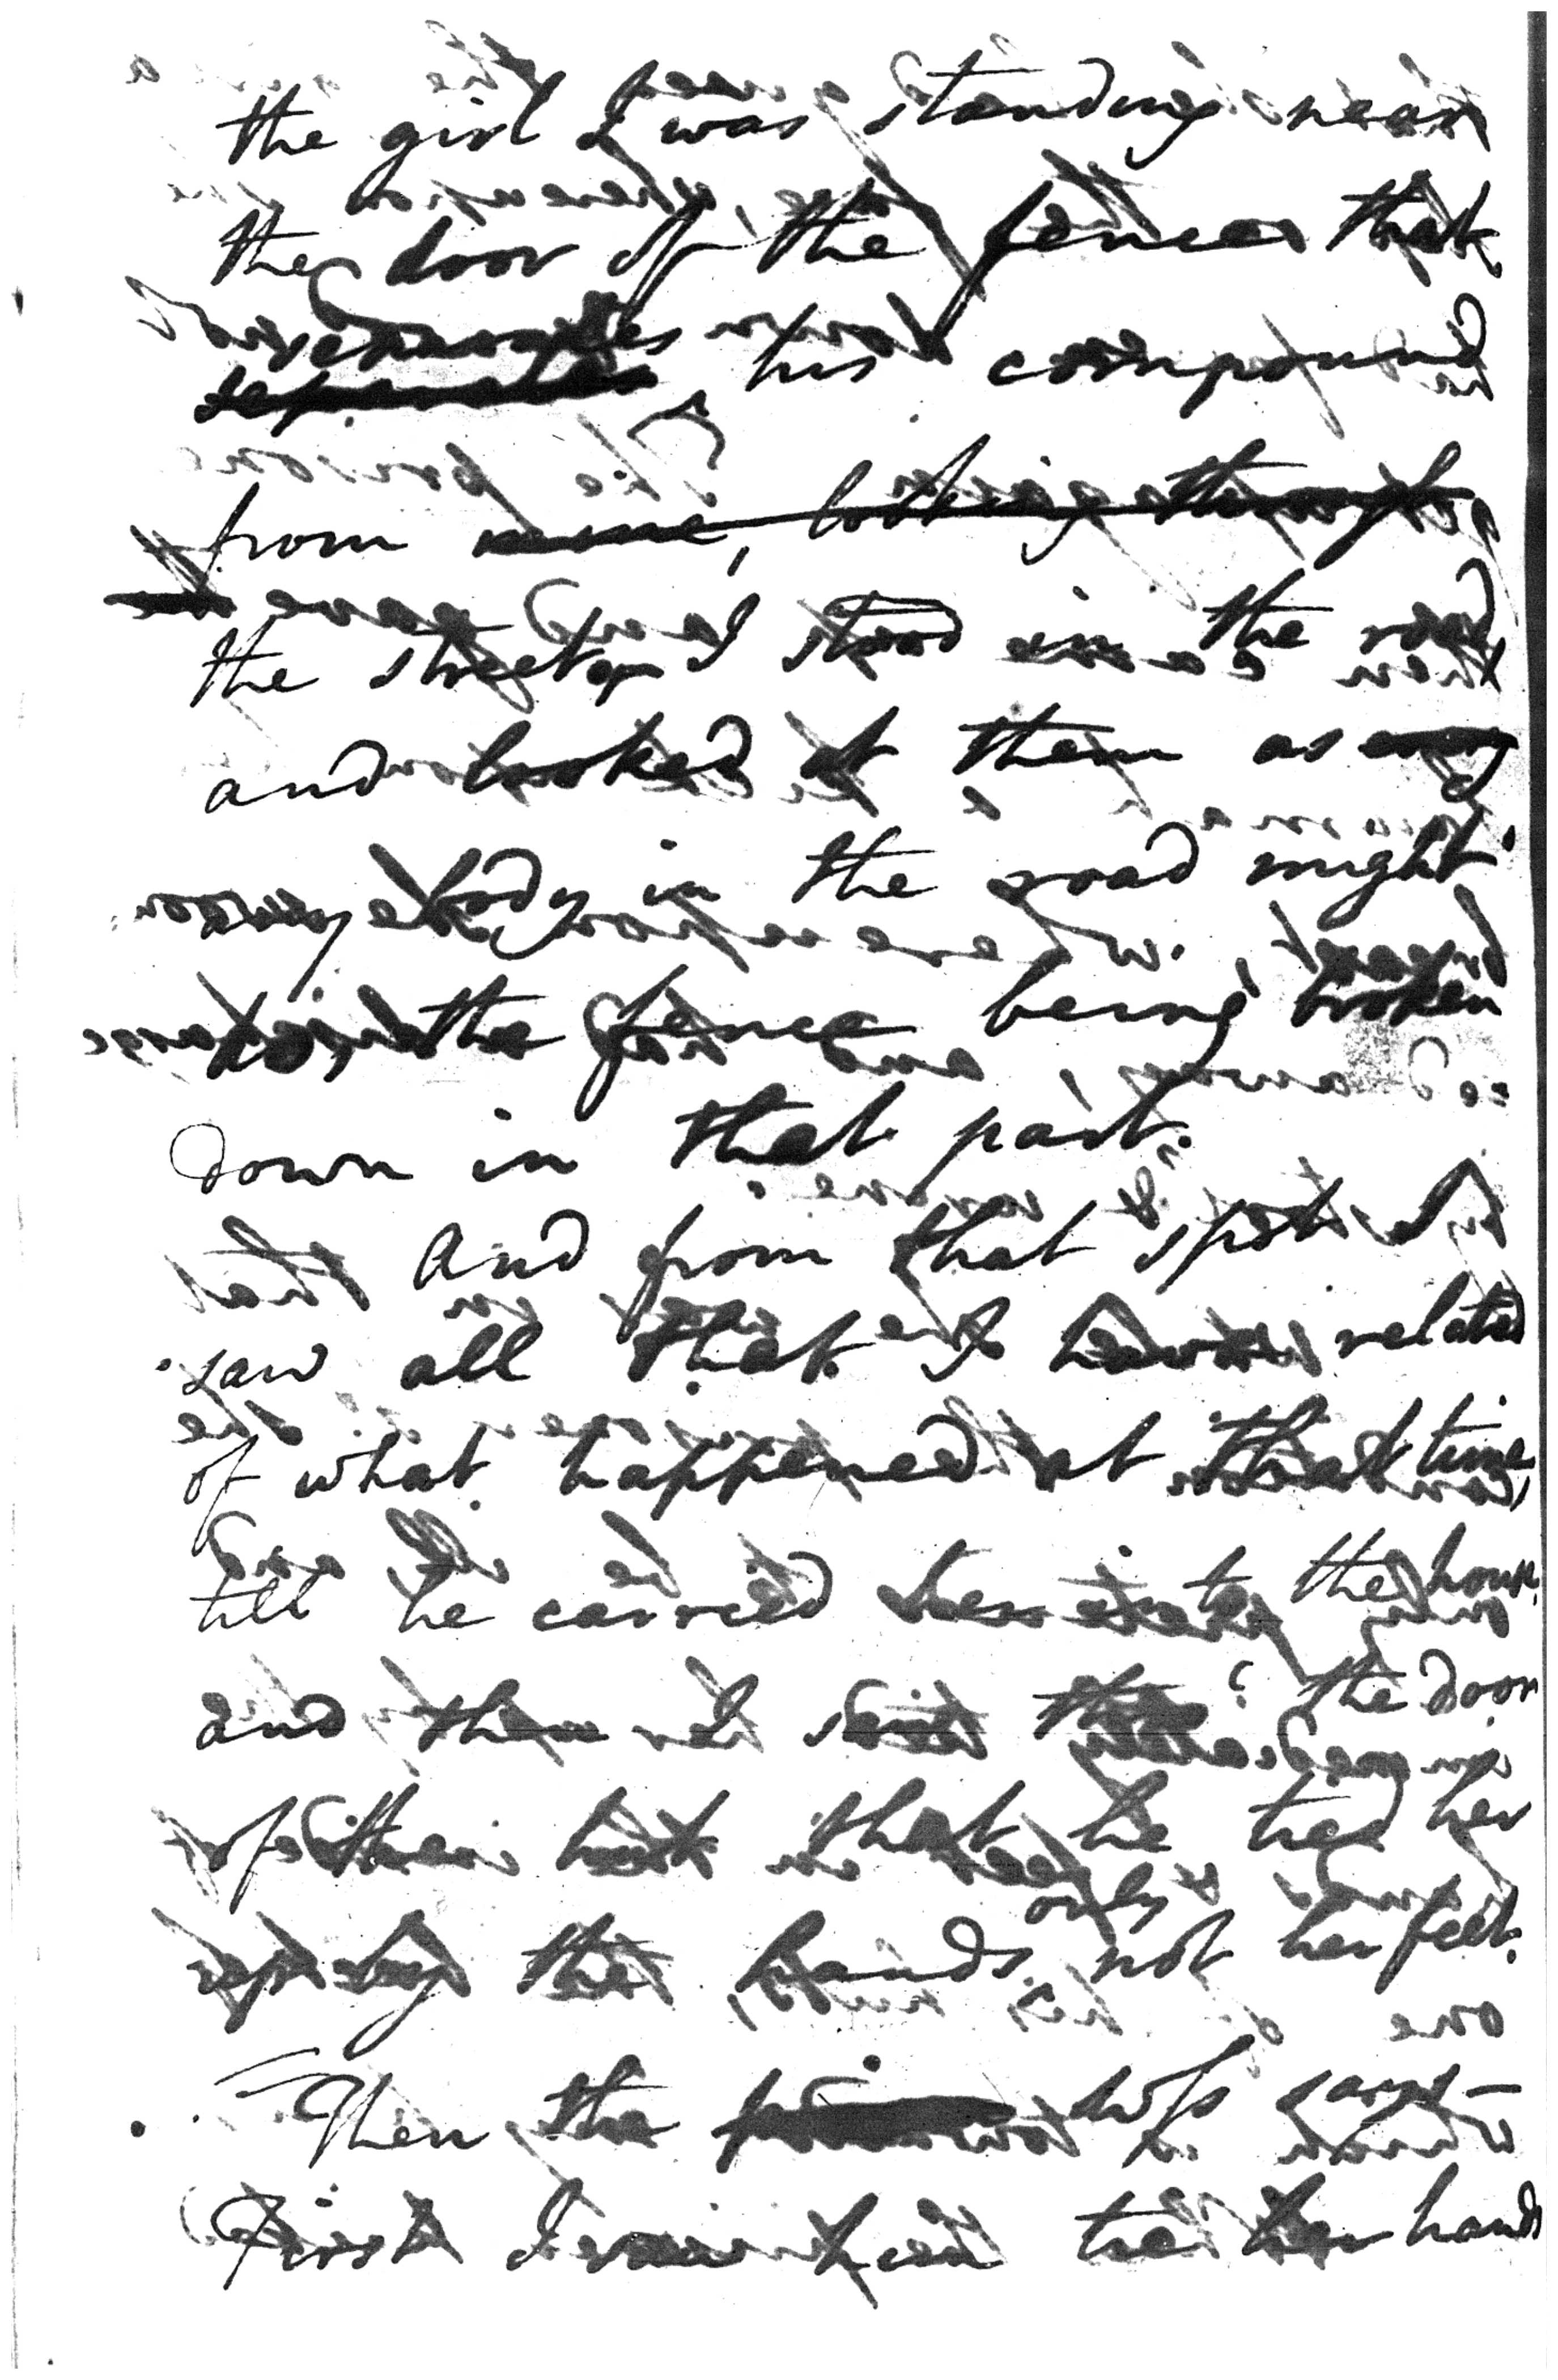 the girl I was standing near
the door of the fence that
separates his compound
from mine, looking through
the street. I stood in the road
and looked at them as any
any body in the road might
the fence being broken
down in that part.
And from that spot I
saw all that I have related
of what happened at that time,
till he carried her into the house.
and then I saw the door
of their hut that he tied her
up by the hands only not her feet.
Then the Wss says —
First I saw him tie her hands